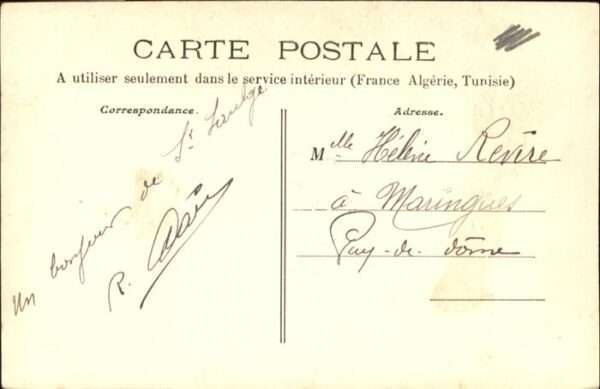 CARTE POSTALE
A utiliser seulement dans le service intérieur (France Algérie, Tunisie)
Correspondance.
Un bonjour de St
R.
Adresse.
Mlle Hélène Revire
à Maringues
Puy-de-dôme